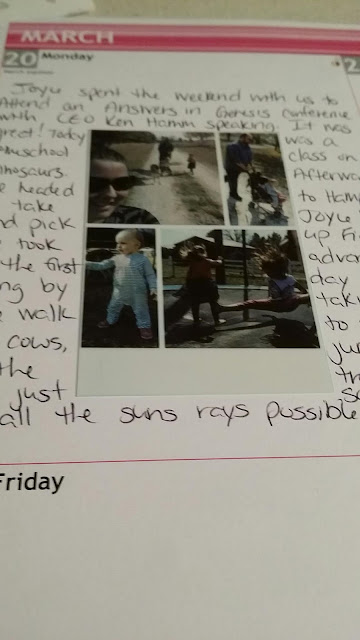 MARCH
20 Monday 2
Joyce spent the weekend with us to
Attend an Answers in Genesis Conference
with CEO Ken Hamm speaking. It was
great! Today was a
homeschool class on
dinosaurs. Afterwa
headed to Ham
take Joyce
nd pick up Fr
took advan
the first day
ng by take
walk to
cows, ju
the
just so
all the suns rays possible
Friday